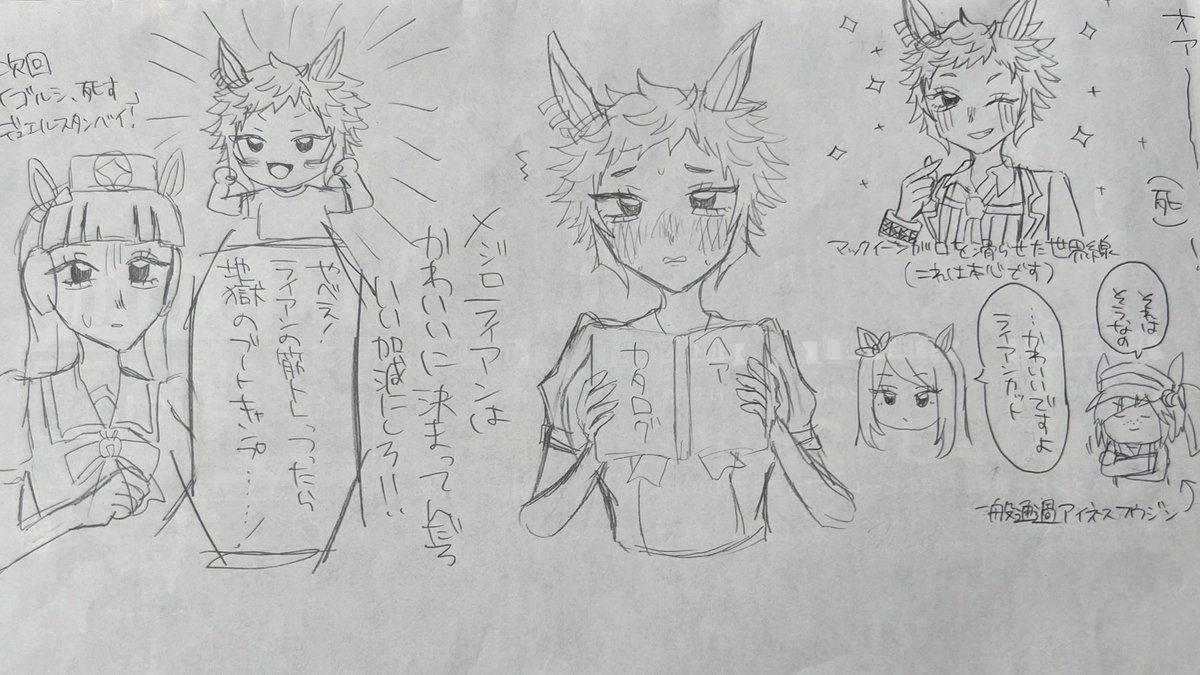 オアーーー
(死)
マックイーンが口を滑らせた世界線
(これは本心です)
それは
そうなの
…かわいいですよ
ライアンガッド
一般通過アイネスフウジン
ヘア
カタログ
メジロライアンは
かわいいに決まってんだろ
いい加減にしろ!!
やべえ!
ライアンの筋トレつったら
地獄のブートキャンプ……
次回
「ゴルシ、死す」
デュエルスタンバイ!